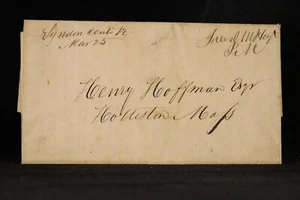 Lyndon Cent Vt
Mar 23
Free
P M
Henry Hoffman Esqr
Holliston Mass